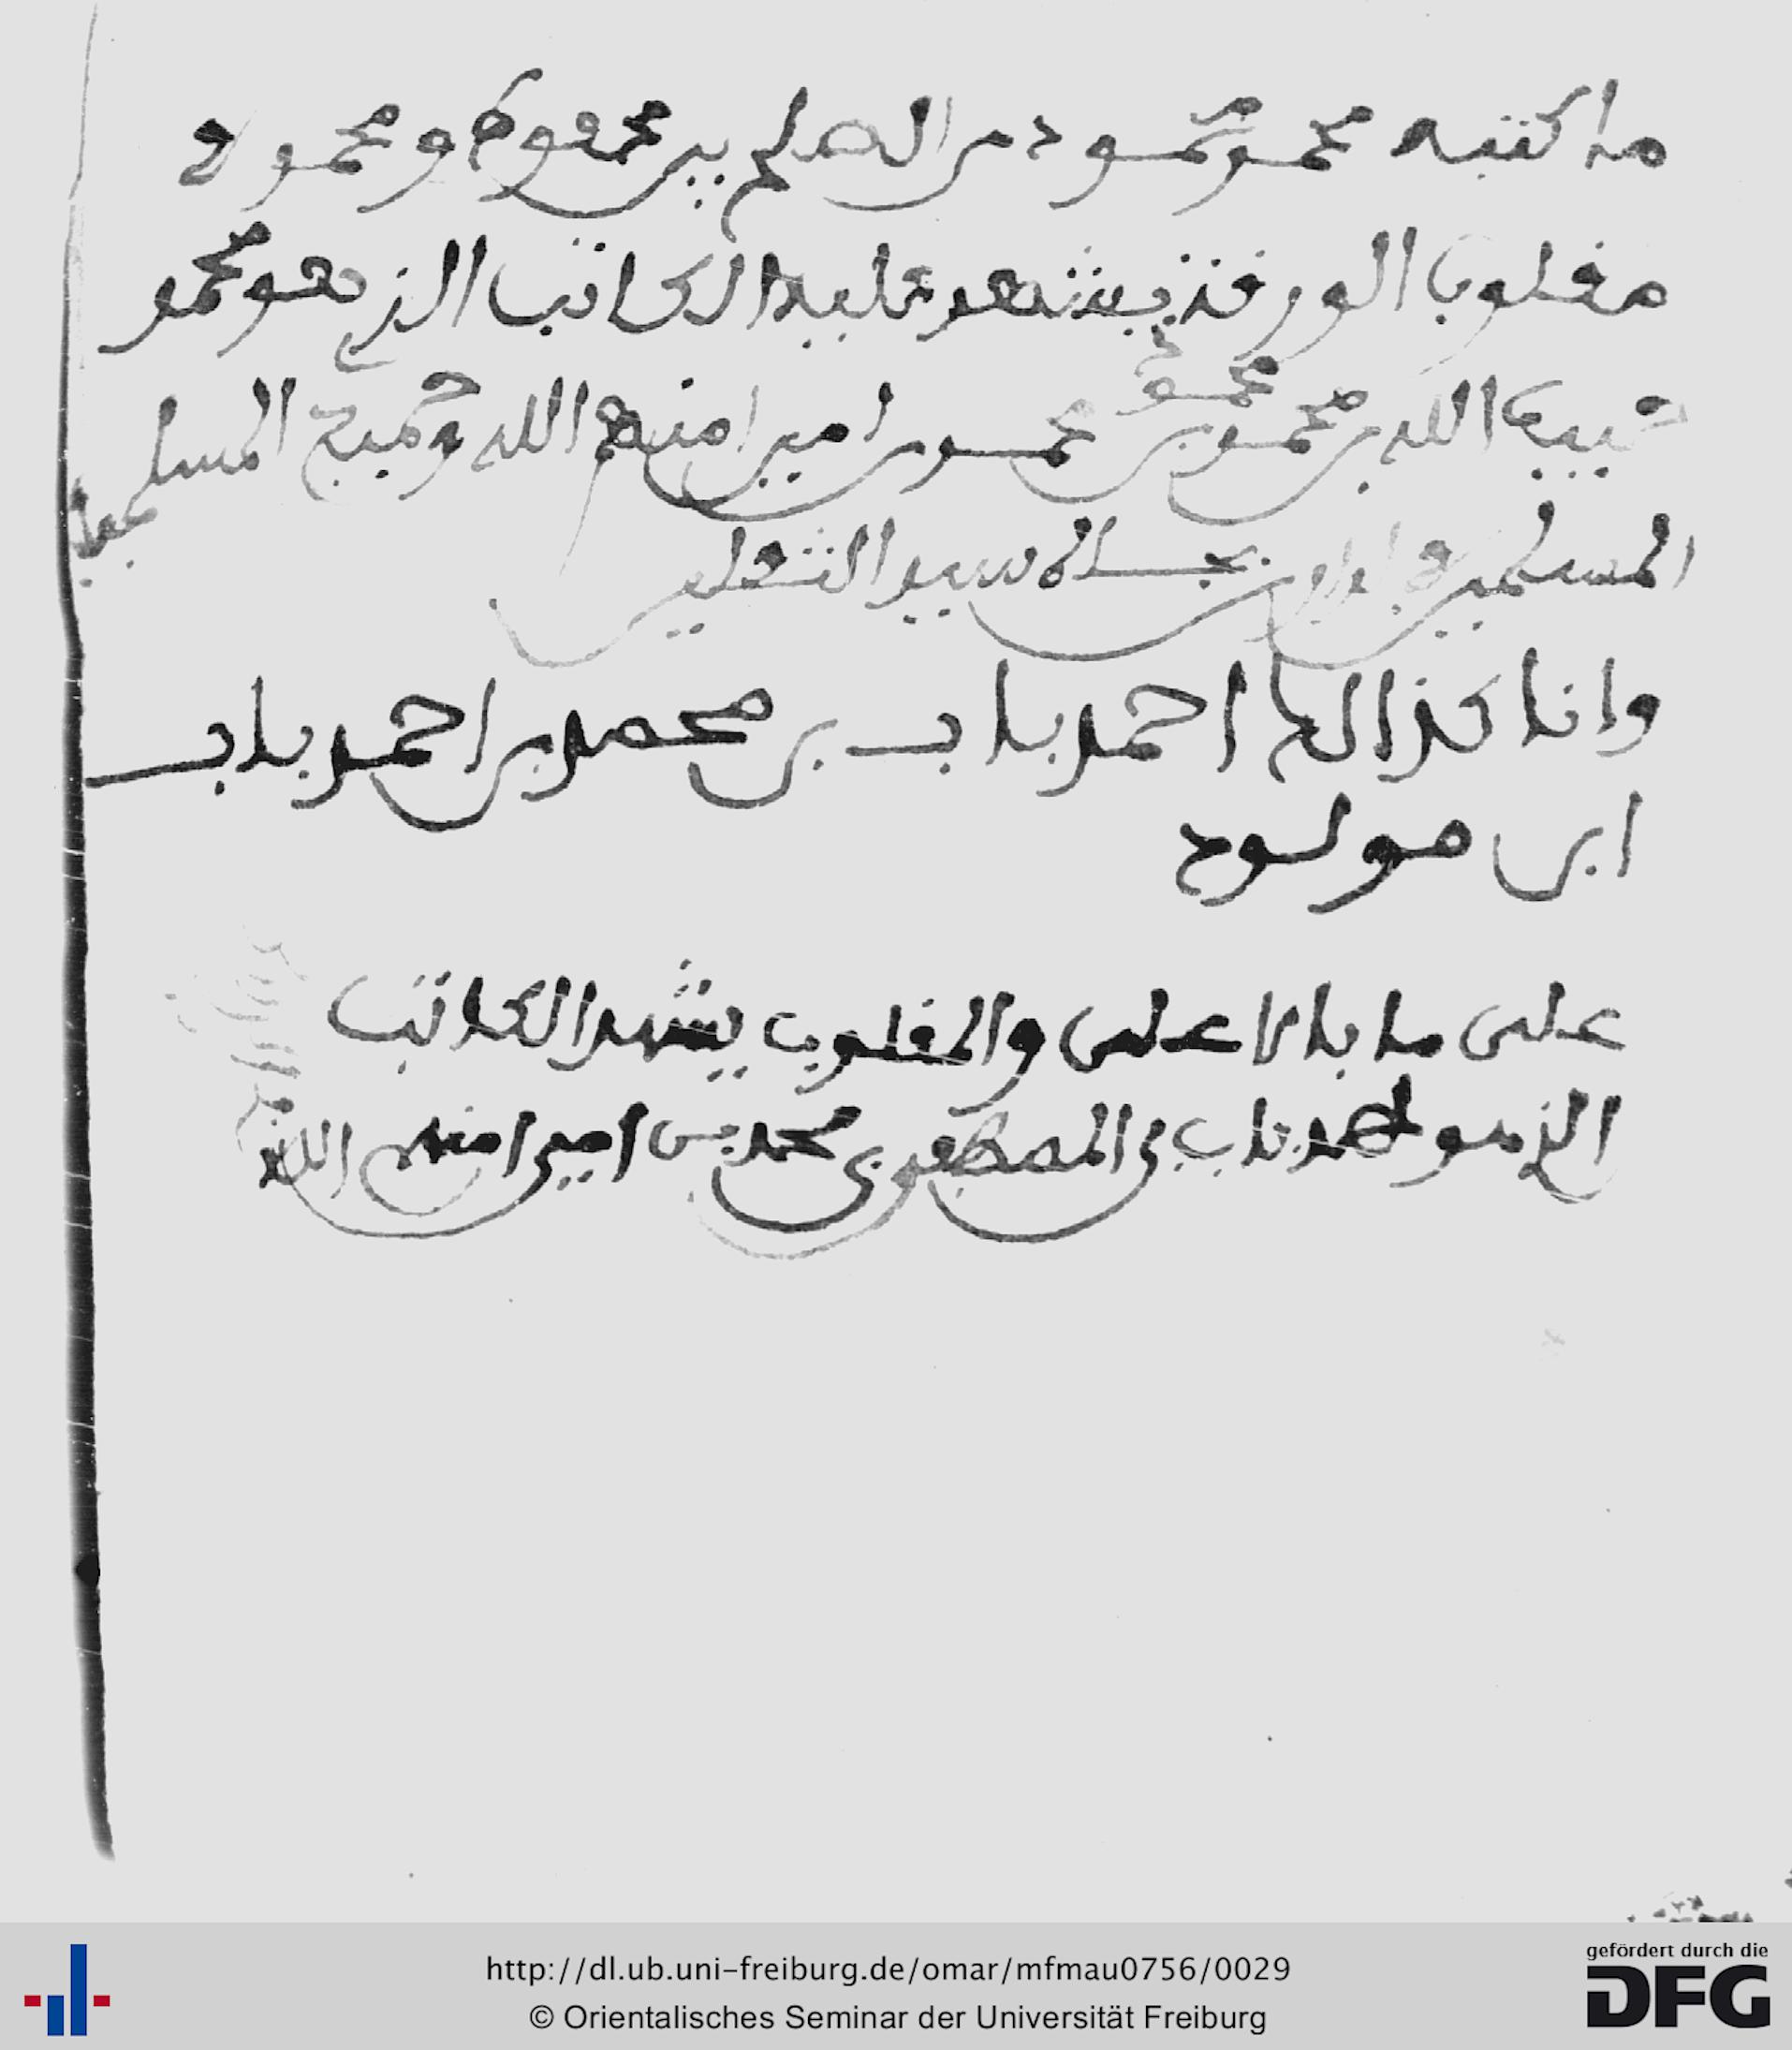 ما كتبه محمد محمود من الصلح بين محفوظ ومحمد
مقلوب الورقة يشهد عليه الكاتب الذي هو محمد
حبيب الله بن محمد بن محمود امين امنهم الله وجميع المسلم
المسلمين بجاه سيد الثقلين
وانا كذالك احمد باب بن محمد بن احمد باب
ابن مولود
على ما بالاعلى والمقلوب يشهد الكاتب
الذي هو احمد باب بن المصطفى بن محمد بن امين امنه الله
http://dl.ub.uni-freiburg.de/omar/mfmau0756/0029
© Orientalisches Seminar der Universität Freiburg
gefördert durch die
DFG